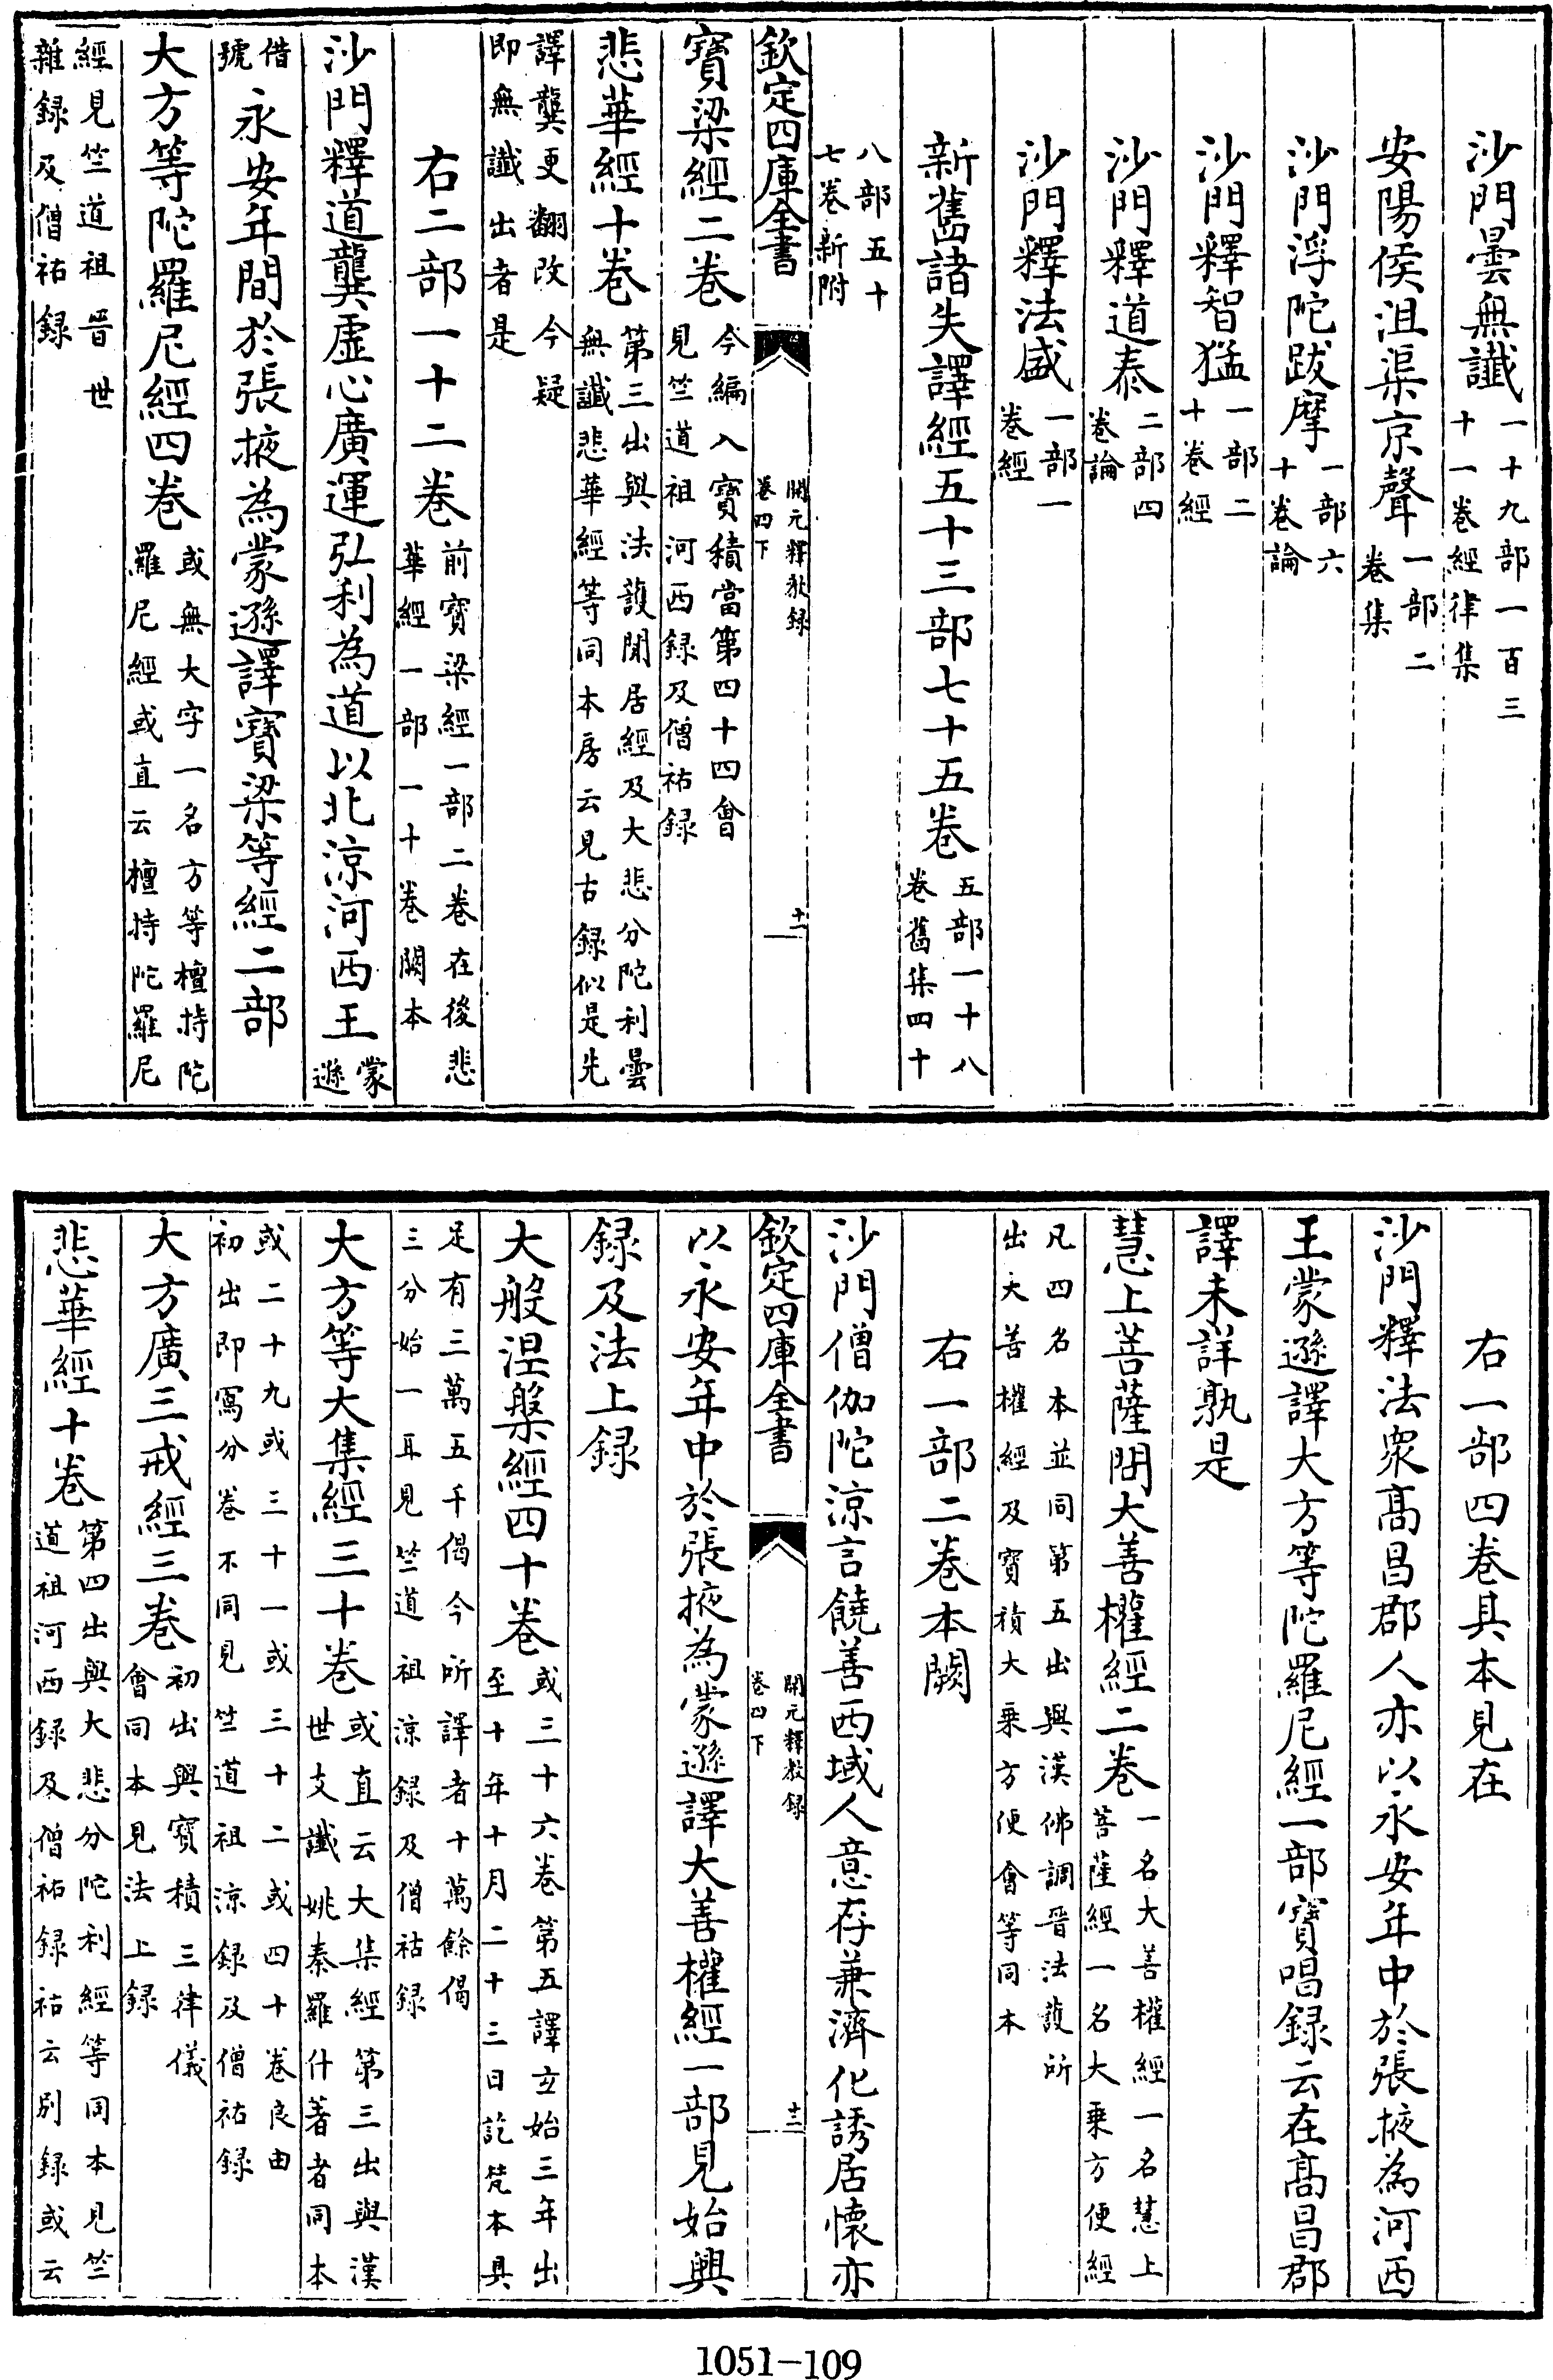 沙門曇無讖一十九部一百三十一卷經律集
安陽侯沮渠京聲一部二卷集
沙門浮陀跋摩一部六十卷論
沙門釋智猛一部二十卷經
沙門釋道泰二部四卷論
沙門釋法盛一部一卷經
新舊諸失譯經五十三部七十五卷五部一十八卷舊集四十
八部五十七卷新附
欽定四庫全書 開元釋教録卷四下 十一
寶梁經二卷今編入寶積當第四十四會見竺道祖河西録及僧祐録
悲華經十卷第三出與法護閒居經及大悲分陀利曇無讖悲華經等同本房云見古録似是先
譯龔更翻改今疑即無讖出者是
右二部一十二卷前寶梁經一部二卷在後悲華經一部一十卷闕本
沙門釋道龔虛心廣運弘利為道以北涼河西王蒙遜
借號永安年間於張掖為蒙遜譯寶梁等經二部
大方等陀羅尼經四卷或無大字一名方等檀持陀羅尼經或直云檀持陀羅尼
經見竺道祖晉世雜録及僧祐録
右一部四卷具本見在
沙門釋法衆髙昌郡人亦以永安年中於張掖為河西
王蒙遜譯大方等陀羅尼經一部寶唱録云在髙昌郡
譯未詳孰是
慧上菩薩問大善權經二卷一名大善權經一名慧上菩薩經一名大乗方便經
凡四名本並同第五出與漢佛調晉法護所出大善權經及寶積大乗方便會等同本
右一部二卷本闕
沙門僧伽陀涼言饒善西域人意存兼濟化誘居懷亦
欽定四庫全書 開元釋教録卷四下 十二
以永安年中於張掖為蒙遜譯大善權經一部見始興
録及法上録
大般涅槃經四十卷或三十六卷第五譯立始三年出至十年十月二十三日訖梵本具
足有三萬五千偈今所譯者十萬餘偈三分始一耳見竺道祖涼録及僧祐録
大方等大集經三十卷或直云大集經第三出與漢世支讖姚秦羅什著者同本
或二十九或三十一或三十二或四十卷良由初出即寫分卷不同見竺道祖涼録及僧祐録
大方廣三戒經三卷初出與寶積三律儀會同本見法上録
悲華經十卷第四出與大悲分陀利經等同本見竺道祖河西録及僧祐録祐云別録或云
1051-109